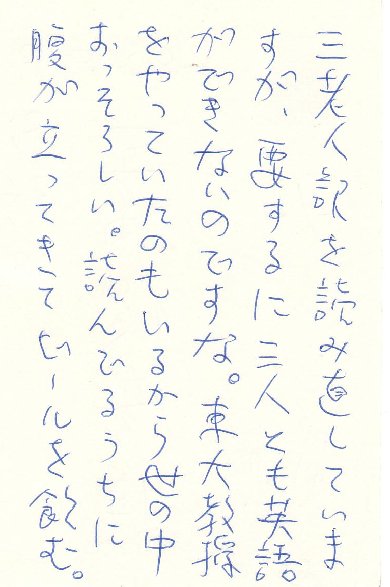 三老人訳を読み直していま
すが、要するに三人とも英語。
ができないのですな。東大教授
をやっていたのもいるから世の中
おっそろしい。読んでるうちに
腹が立ってきてビールを飲む。